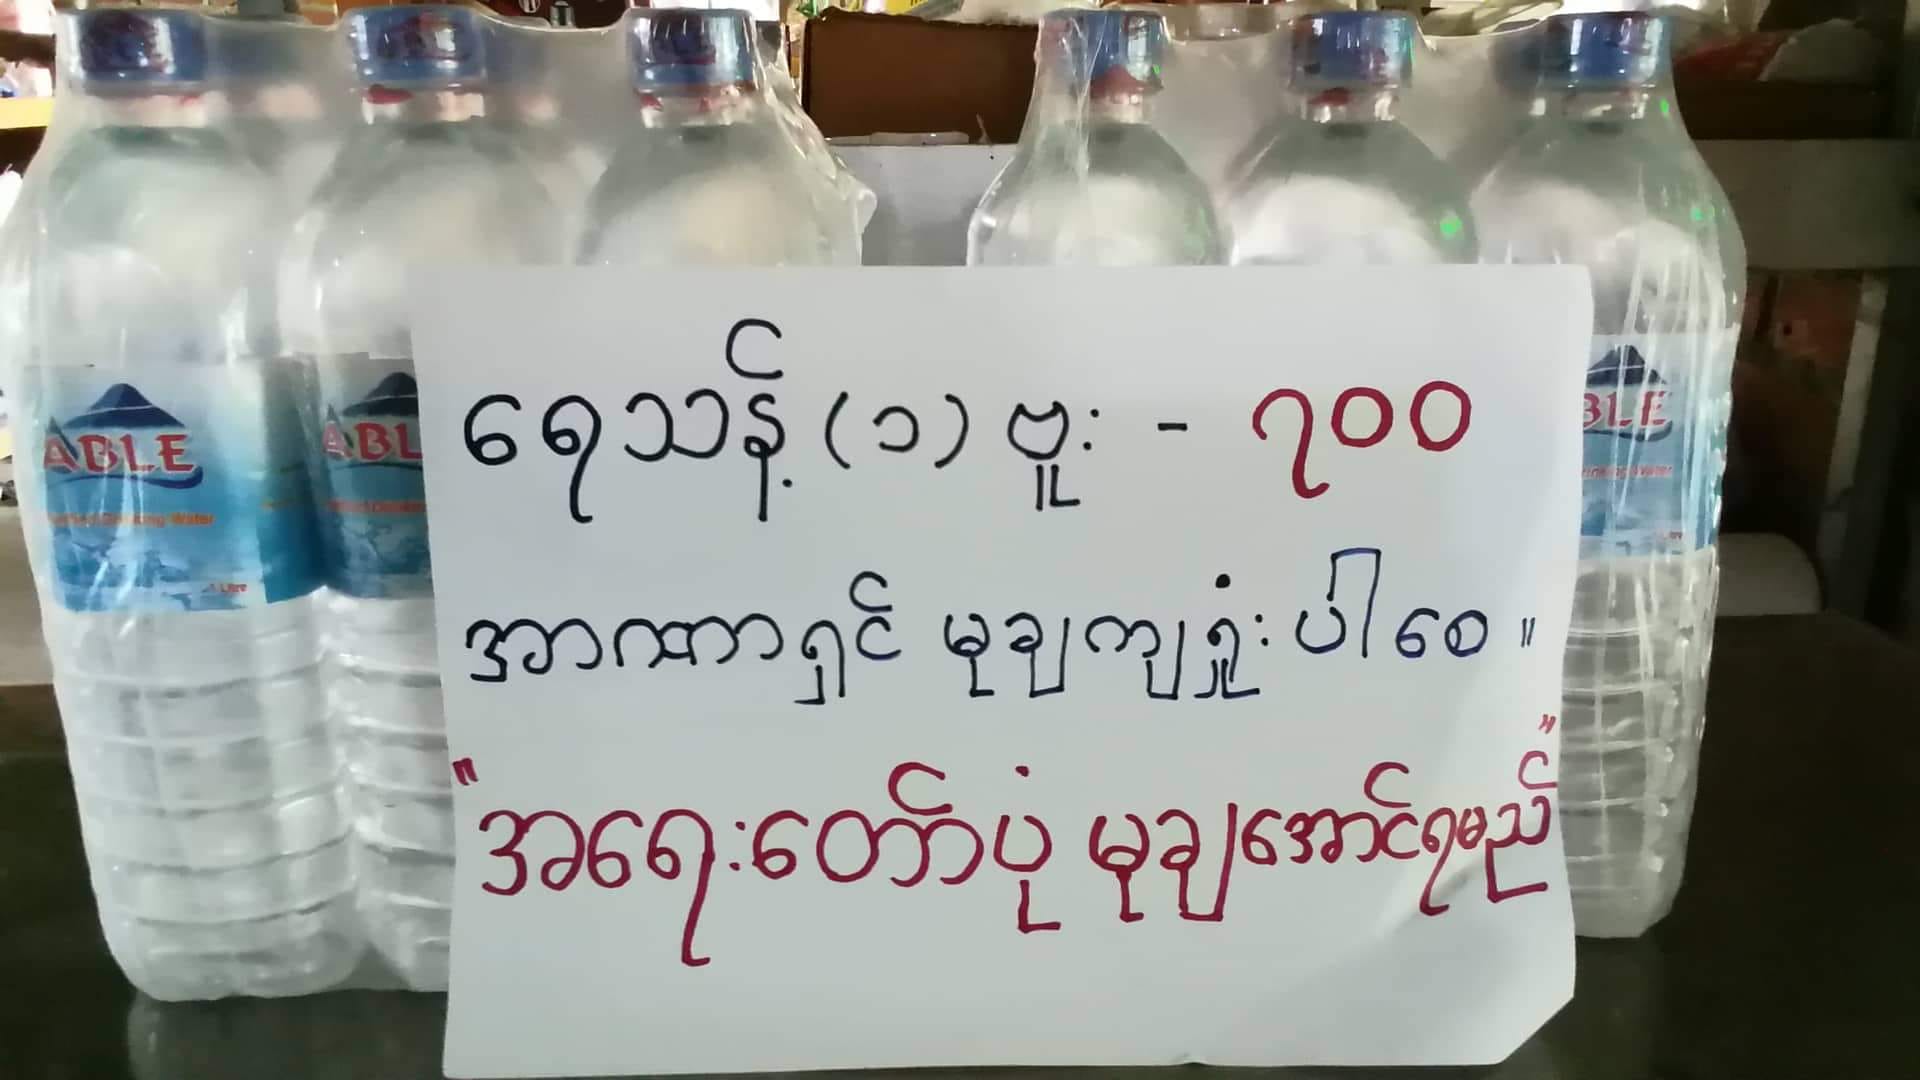 ရေသန့် (၁) ဗူး - ၇၀၀
အာဏာရှင် မုချကျရှုံးပါစေ။
"အရေးတော်ပုံ မုချအောင်ရမည်"
ABLE
Drinking Water
1 Litre
ABL
BLE